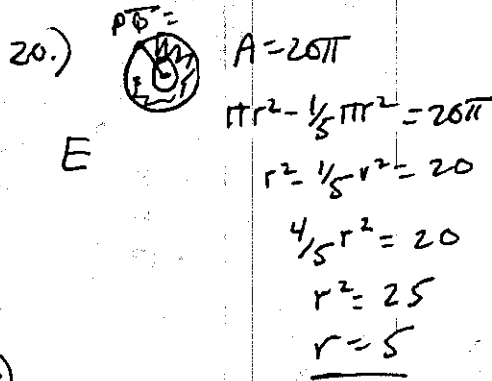 20.) A = 20π
πr² - 1/5 πr² = 20π
E
r² - 1/5 r² = 20
4/5 r² = 20
r² = 25
r = 5